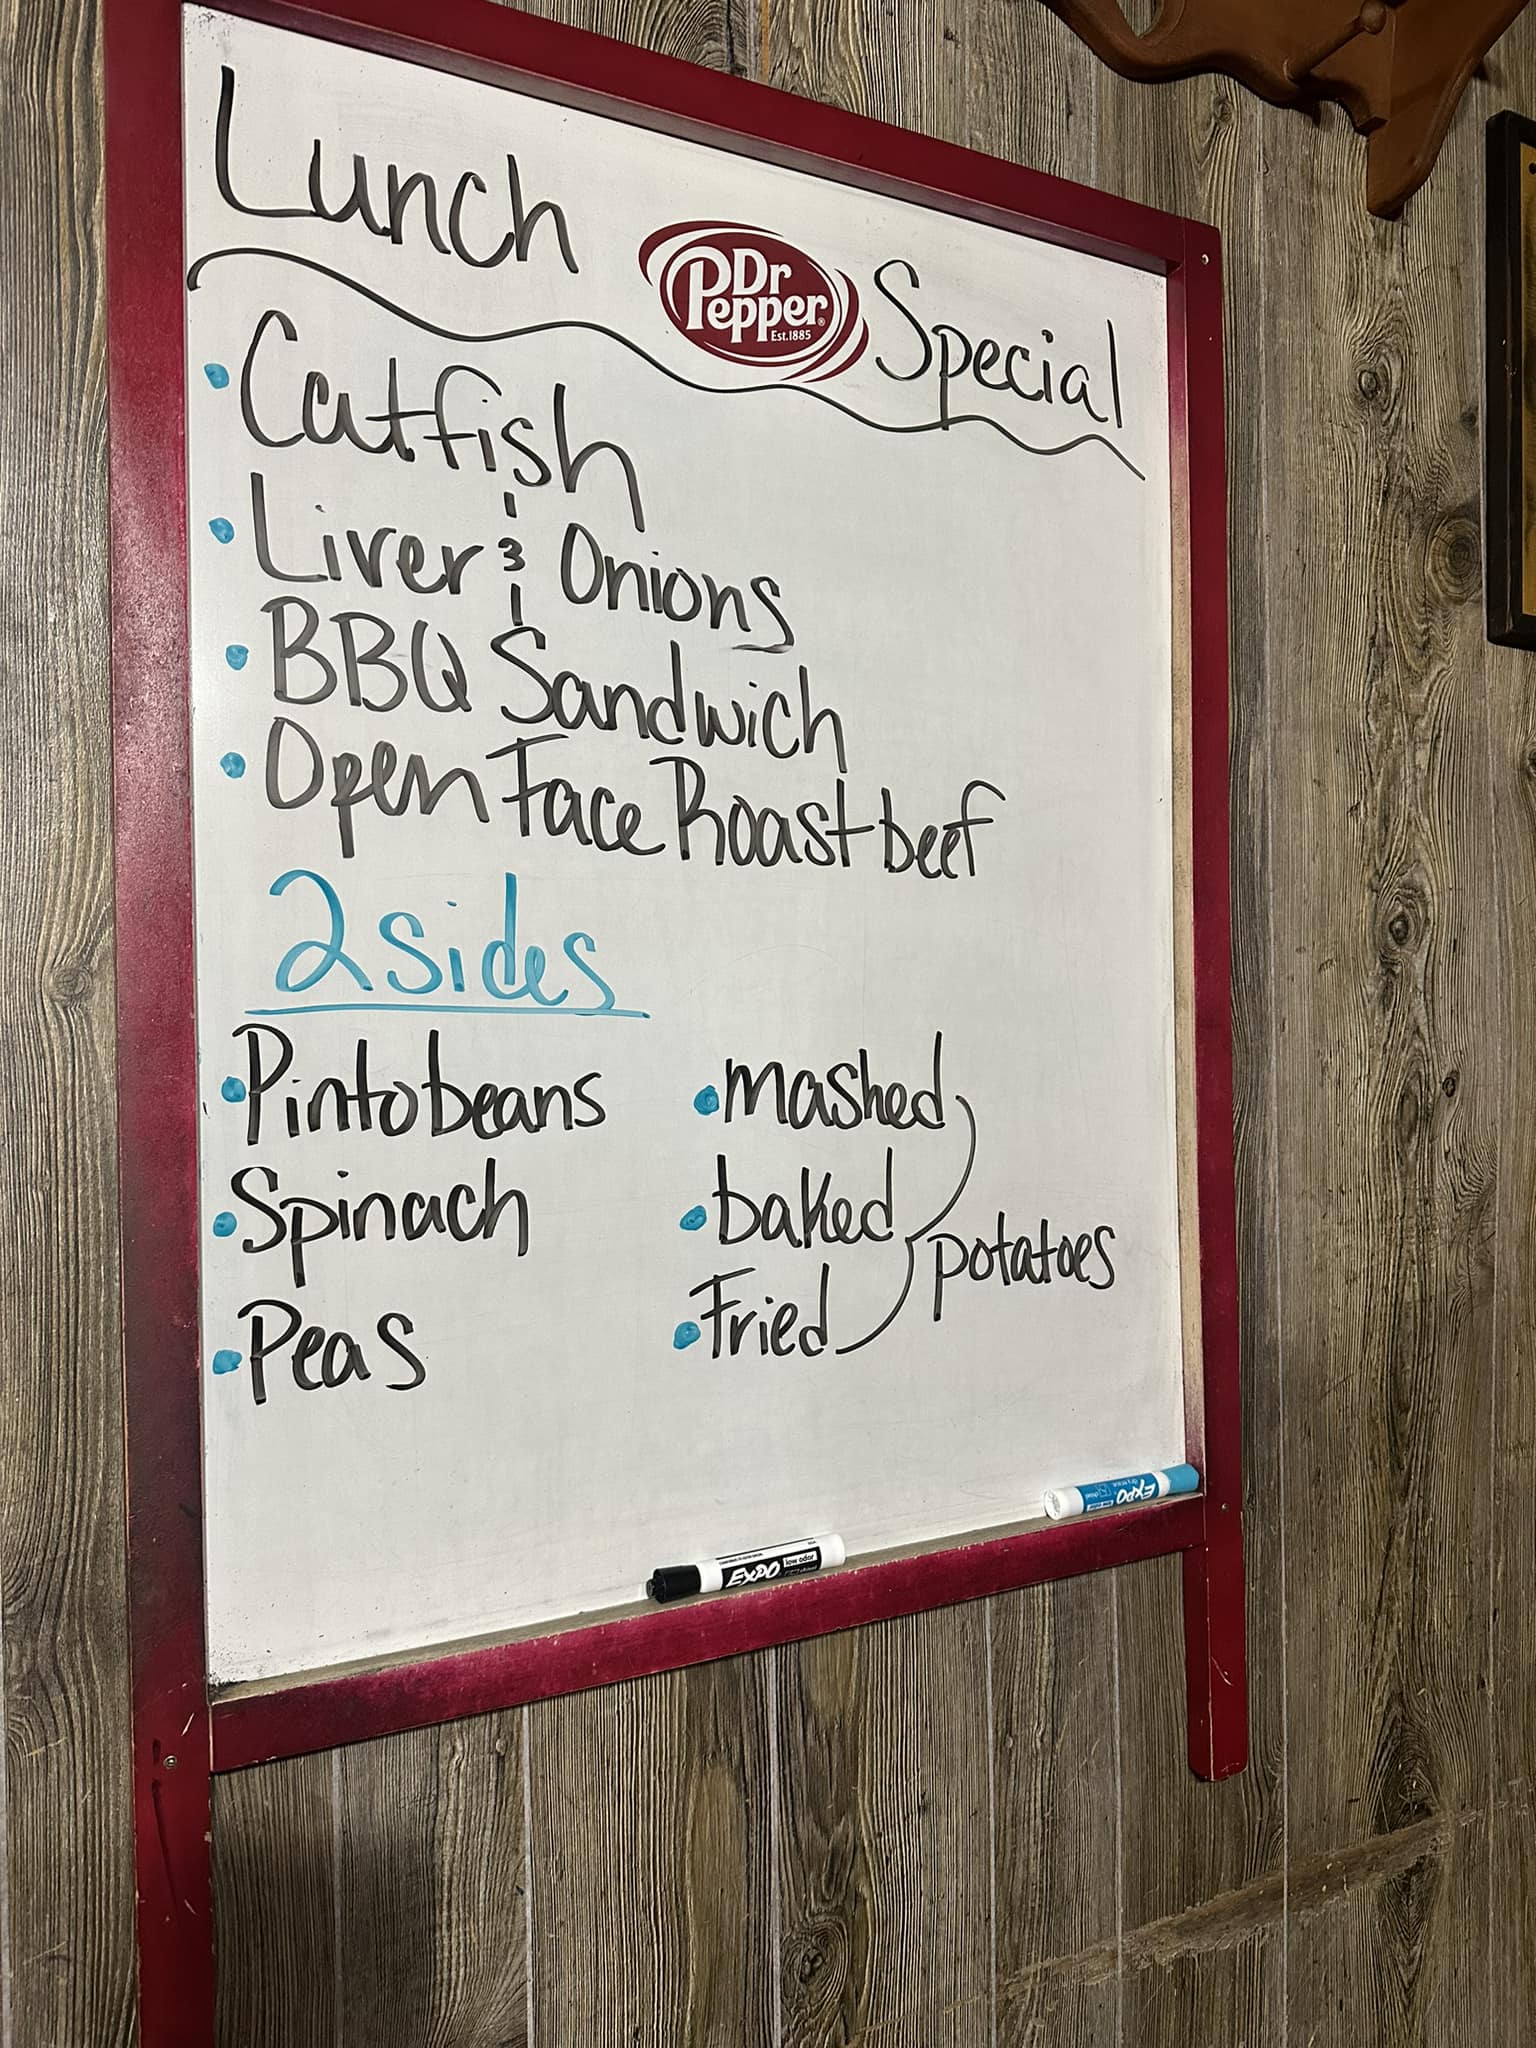 Lunch Special
Dr Pepper®
Est.1885
Catfish
Liver & Onions
BBQ Sandwich
Open Face Roast beef
2 sides
Pinto beans
Spinach
Peas
mashed
baked
Fried
potatoes
EXPO
EXPO low odor